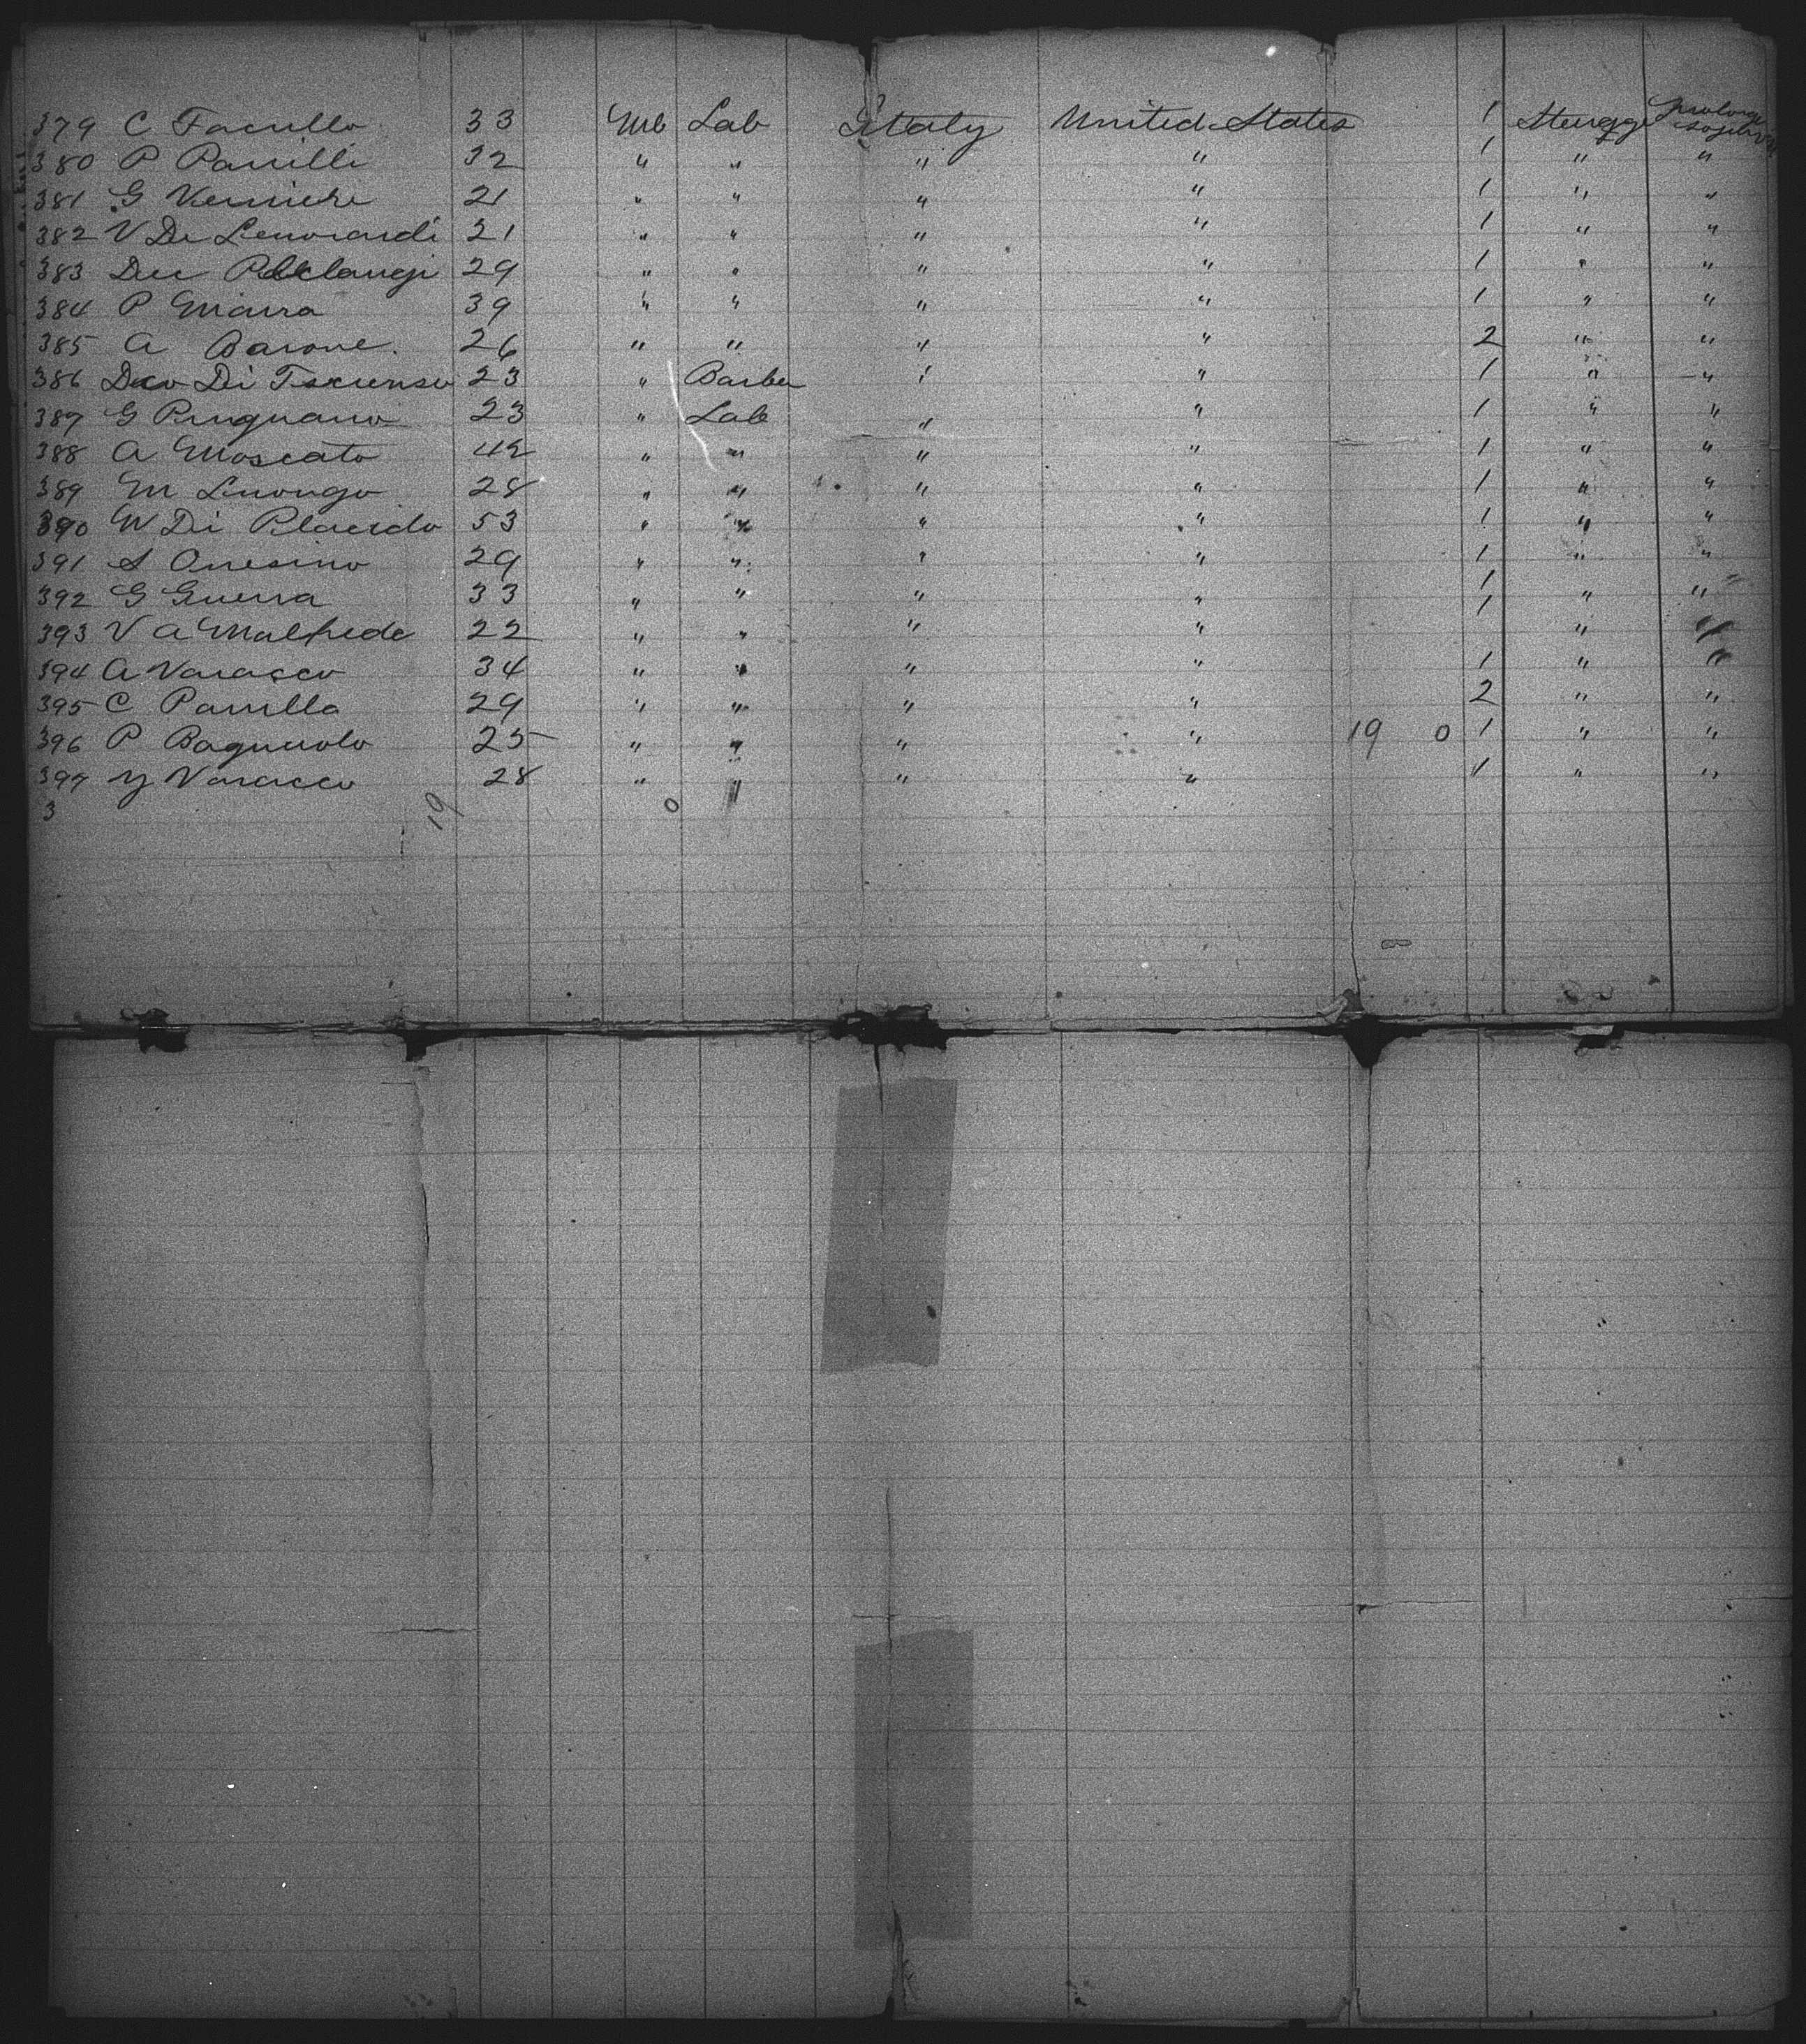 379 C Facullo 33 Ml Lab Italy United States 1 Sturgge
380 P Panilli 32 " " " " 1 " "
381 G Verniere 21 " " " " 1 " "
382 V De Lenorardi 21 " " " " 1 " "
383 29 " " " " 1 " "
384 P Maura 39 " " " " 1 " "
385 A Barone. 26 " " " " 2 " "
386 Di 23 " Barber " " 1 " "
387 G Prugnano 23 " Lab " " 1 " "
388 A Moscato 42 " " " " 1 " "
389 M Luongo 28 " " " " 1 " "
390 N Di Placido 53 " " " " 1 " "
391 S Onesino 29 " " " " 1 " "
392 G Guerra 33 " " " " 1 " "
393 V A Malfiede 22 " " " " 1 " "
394 A Varacco 34 " " " " 1 " "
395 C Panulla 29 " " " " 2 " "
396 P Bagnuolo 25 " " " " 19 0 1 " "
397 Y Varacco 28 " " " " 1 " "
3 19 0